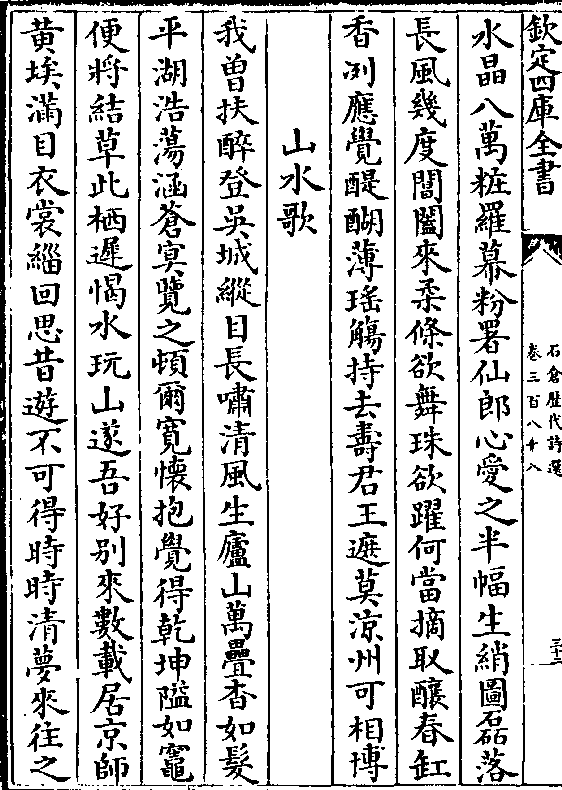 欽定四庫全書
石倉歴代詩選
卷三百八十八
三十二
水晶八萬粧羅幕粉署仙郎心愛之半幅生綃圖磊落
長風幾度閶闔來柔條欲舞珠欲躍何當摘取釀春缸
香冽應覺醍醐薄瑤觴持去壽君王遮莫涼州可相博
山水歌
我曽扶醉登吳城縱目長嘯清風生廬山萬疊杳如髮
平湖浩蕩涵蒼冥覽之頓爾寛懷抱覺得乾坤隘如竈
便將結草此栖遲愒水玩山遂吾好别來數載居京師
黄埃滿目衣裳緇回思昔遊不可得時時清夢來往之